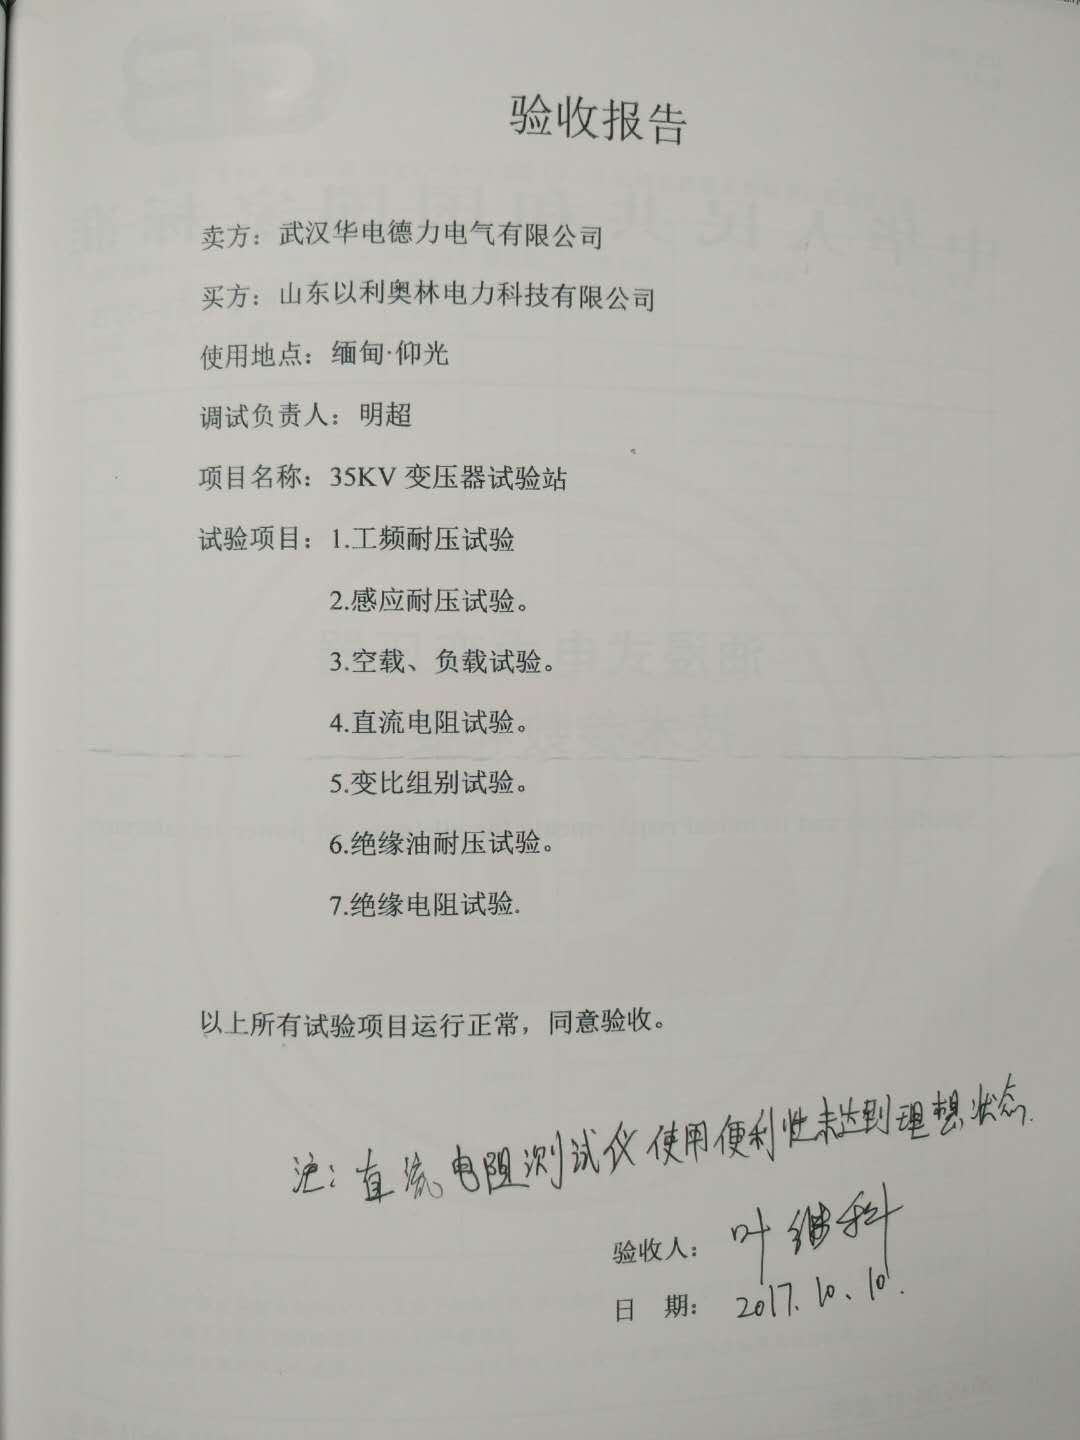 验收报告
卖方：武汉华电德力电气有限公司
买方：山东以利奥林电力科技有限公司
使用地点：缅甸·仰光
调试负责人：明超
项目名称：35KV 变压器试验站
试验项目：1.工频耐压试验
2.感应耐压试验。
3.空载、负载试验。
4.直流电阻试验。
5.变比组别试验。
6.绝缘油耐压试验。
7.绝缘电阻试验.
以上所有试验项目运行正常，同意验收。
注：直流电阻测试仪使用便利性未达到理想状态.
验收人：叶继科
日 期：2017.10、10.